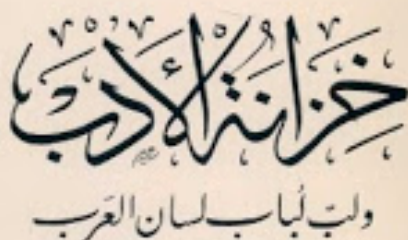 خزانة الأدب
ولبّ لُباب لسان العَرب